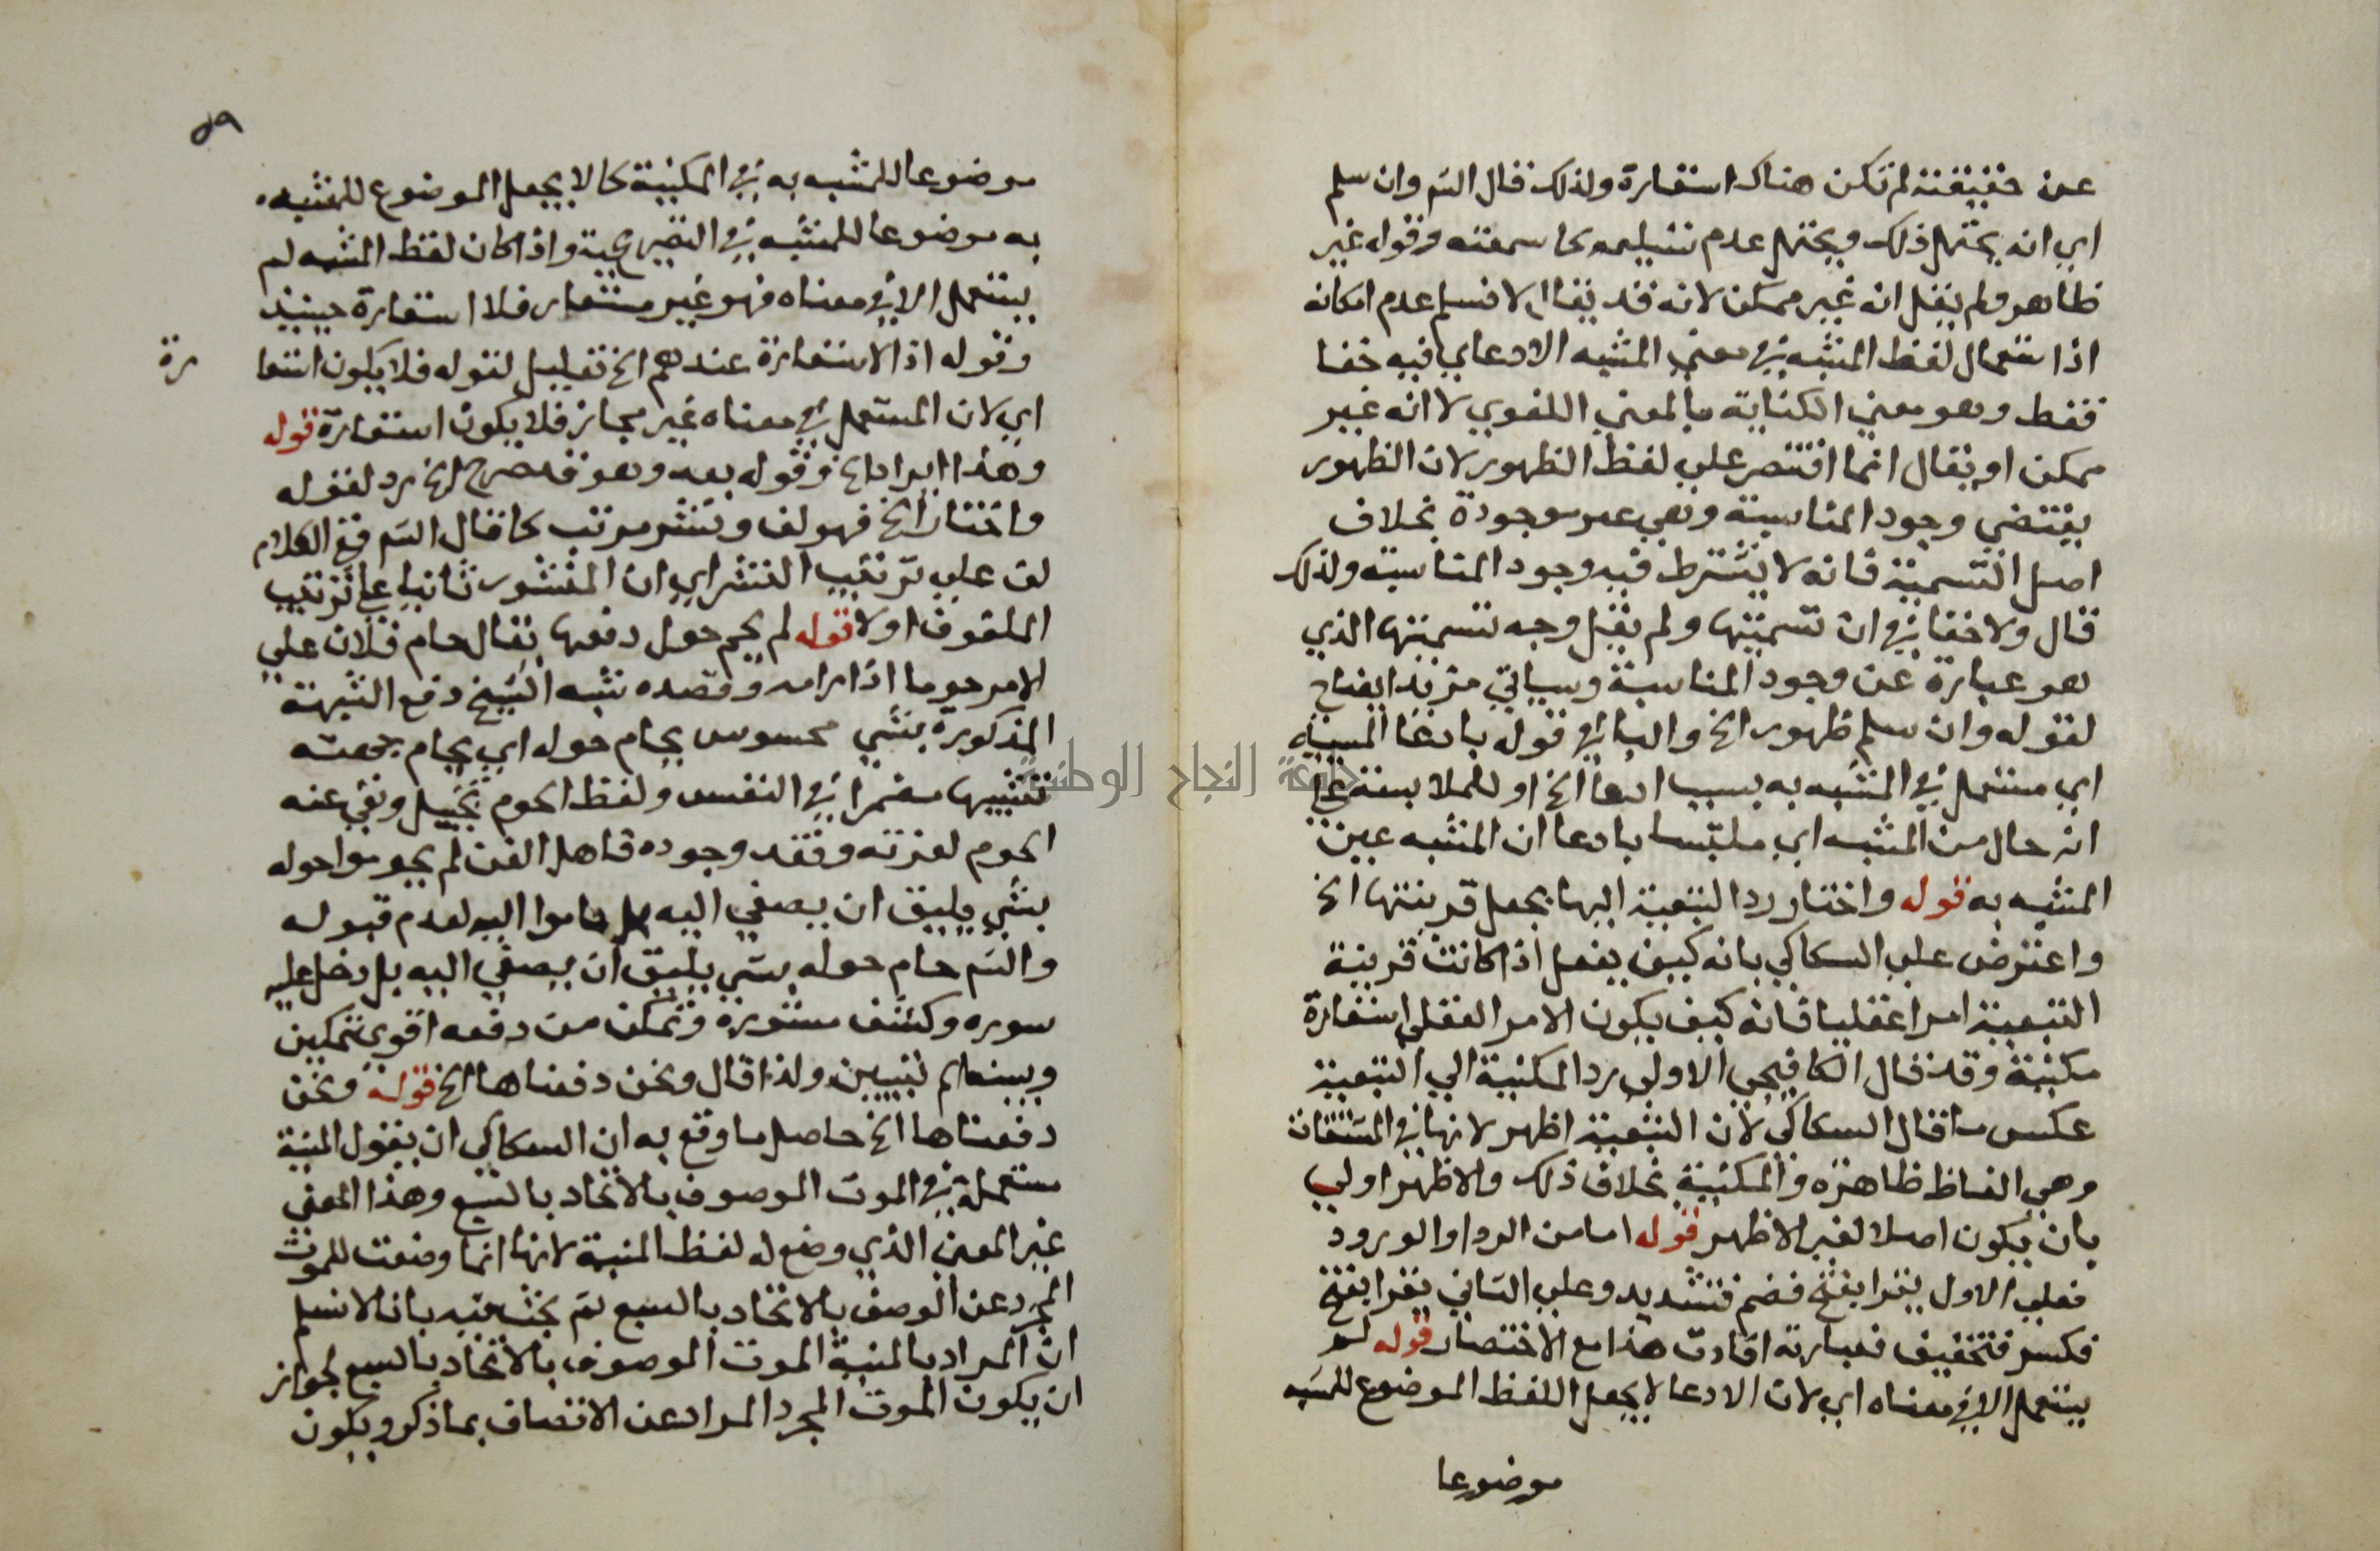 عن حقيقته لم تكن هناك استعارة ولذلك قال الشم وان سلم
اي انه يحتمل ذلك ويحتمل عدم تسليمه كما سمعته وقوله غير
ظاهر ولم يقل انه غير ممكن لانه قد يقال لا نسلم عدم امكانه
اذا ستعمال لفظ المشبه في معني المشبه الادعاي فيه خفا
فقط وهو معني الكناية بالمعني اللغوي لا انه غير
ممكن او يقال انما اقتصر علي لفظ الظهور لان الظهور
يقتضي وجود المناسبة وهي غير موجودة بخلاف
اصل التسمية فانه لا يشترط فيه وجود المناسبة ولذلك
قال ولا خفا في ان تسميتها ولم يقل وجه تسميتها الذي
هو عبارة عن وجود المناسبة وسياتي مزيد ايضاح
لقوله وان سلم ظهور الخ والبا في قوله بادعا السببية
اي مستعمل في المشبه به بسبب ادعا الخ او للملابسة علي
انه حال من المشبه اي ملتبسا بادعا ان المشبه عين
المشبه به قوله واختار رد التبعية اليها بجعل قرينتها الخ
واعترض علي السكاكي بانه كيف يفعل اذا كانت قرينة
التبعية امرا عقليا فانه كيف يكون الامر العقلي استعارة
مكنية وقد قال الكافيجي الاولي رد المكنية الي التبعية
عكس ما قال السكاكي لان التبعية اظهر لانها في المشتقات
وهي الفاظ ظاهرة والمكنية بخلاف ذلك والاظهر اولي
بان يكون اصلا لغير الاظهر قوله اما من الرد او الورود
فعلي الاول يقرا بفتح فضم فتشديد وعلي الثاني يقرا بفتح
فكسر فتخفيف فعبارته افادت هذا مع الاختصار قوله لم
يستعمل الا في معناه اي لان الادعا لا يجعل اللفظ الموضوع للمشبه
موضوعا
٥٩
موضوعا للمشبه به في المكنية كما لا يجعل الموضوع للمشبه
به موضوعا للمشبه في التصريحية واذا كان لفظ المشبه لم
يستعمل الا في معناه فهو غير مستعار فلا استعارة حينيذ
وقوله اذ الاستعارة عندهم الخ تعليل لقوله فلا يكون استعا رة
اي لان المستعمل في معناه غير مجاز فلا يكون استعارة قوله
وهذا ايراد الخ وقوله بعد وهو قد صرح الخ رد لقوله
واختار الخ فهو لف ونشر مرتب كما قال الشم ففي الكلام
لف علي ترتيب النشر اي ان المنشور ثانيا علي ترتيب
الملفوف اولا قوله لم يحم حول دفعها يقال حام فلان علي
الامر حوما اذا رامه وقصده شبه الشيخ دفع الشبهة
المذكورة بشي محسوس يحام حوله اي يحام جهته
تشبيها مضمرا في النفس ولفظ الحوم تخييل ونفي عنه
الحوم لعزته وفقد وجوده فاهل الفن لم يحوموا حوله
بشي يليق ان يصغي اليه بل حاموا اليه لعدم قبوله
والشم حام حوله بشي يليق ان يصغي اليه بل دخل عليه
سوره وكشف مستوره وتمكن من دفعه اقوي تمكين
وبينه اتم تبيين ولذا قال ونحن دفعناها الخ قوله ونحن
دفعناها الخ حاصل ما وقع به ان السكاكي ان يقول المنية
مستعملة في الموت الموصوف بالاتحاد بالسبع وهذا المعني
غير المعني الذي وضع له لفظ المنية لانها انما وضعت للموت
المجرد عن الوصف بالاتحاد بالسبع ثم بحث فيه بانا لا نسلم
ان المراد بالمنية الموت الموصوف بالاتحاد بالسبع لجواز
ان يكون الموت المجرد المراد عن الاتصاف بما ذكر ويكون
جامعة النجاح الوطنية